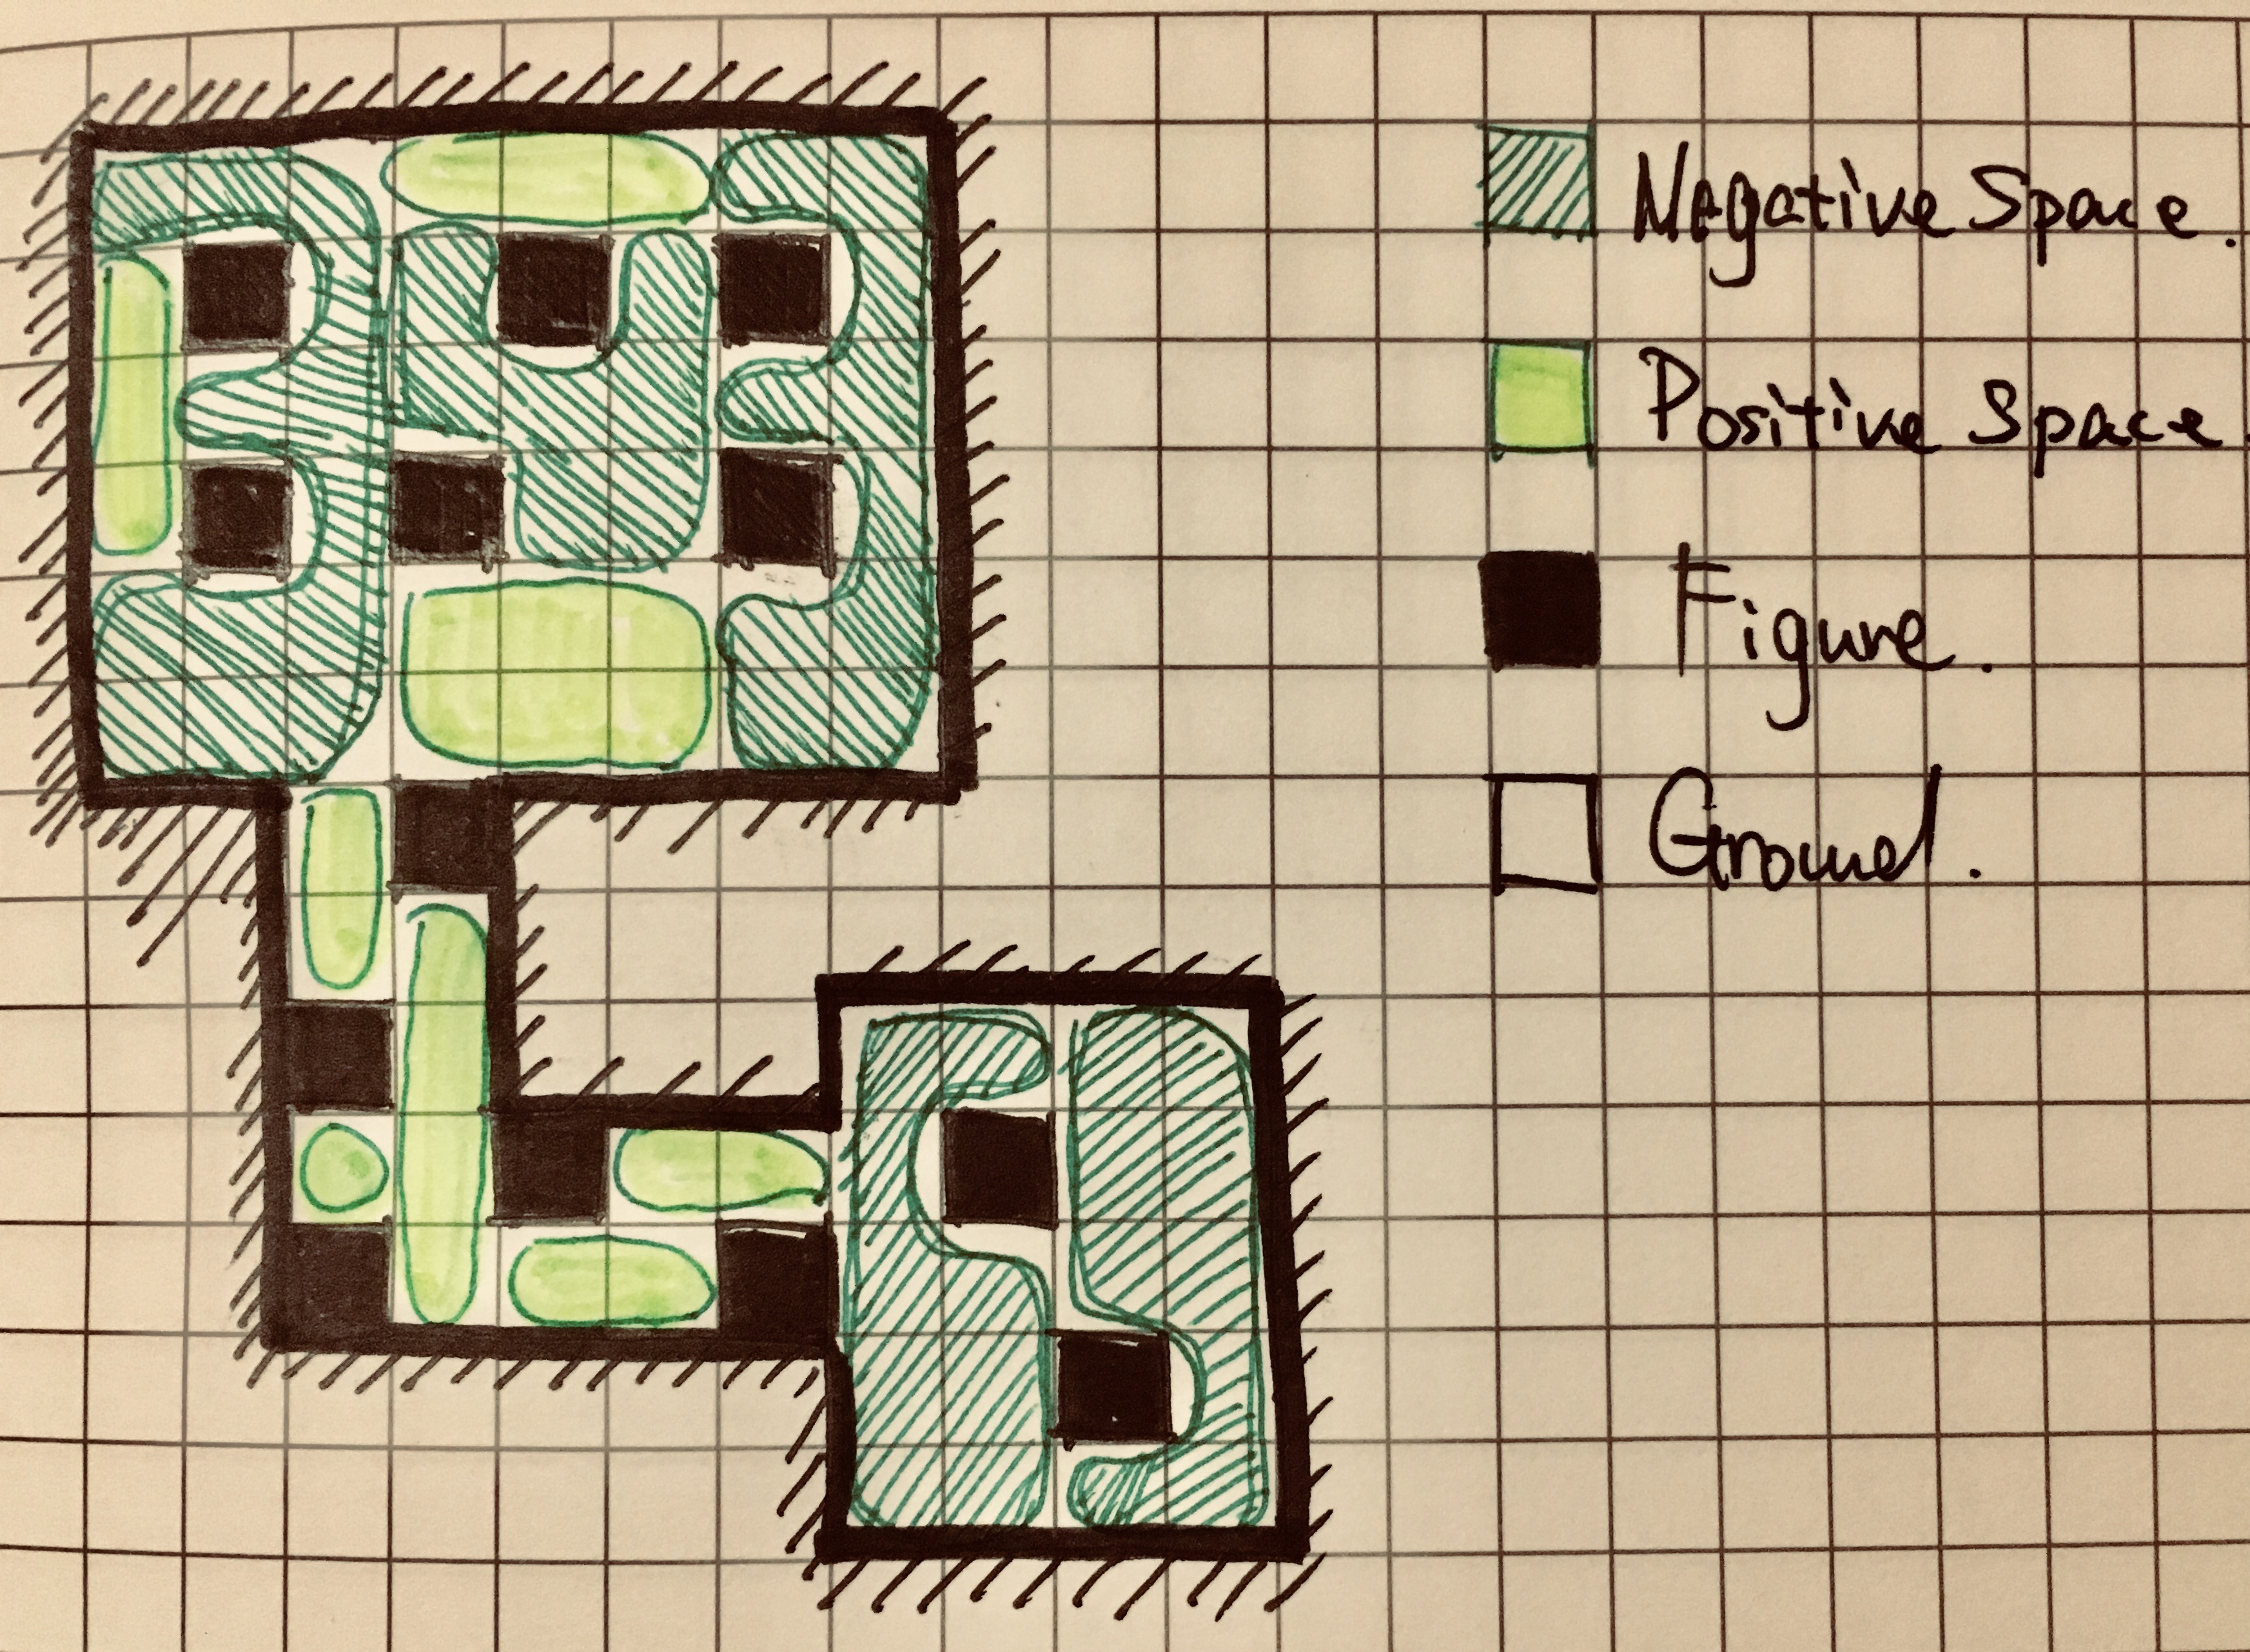 Negative Space.
Positive Space.
Figure.
Ground.